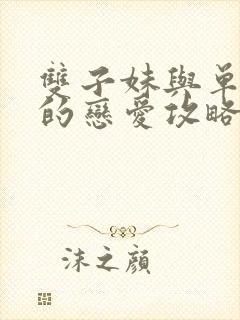 雙子妹與單
的戀愛攻略
沫之顏